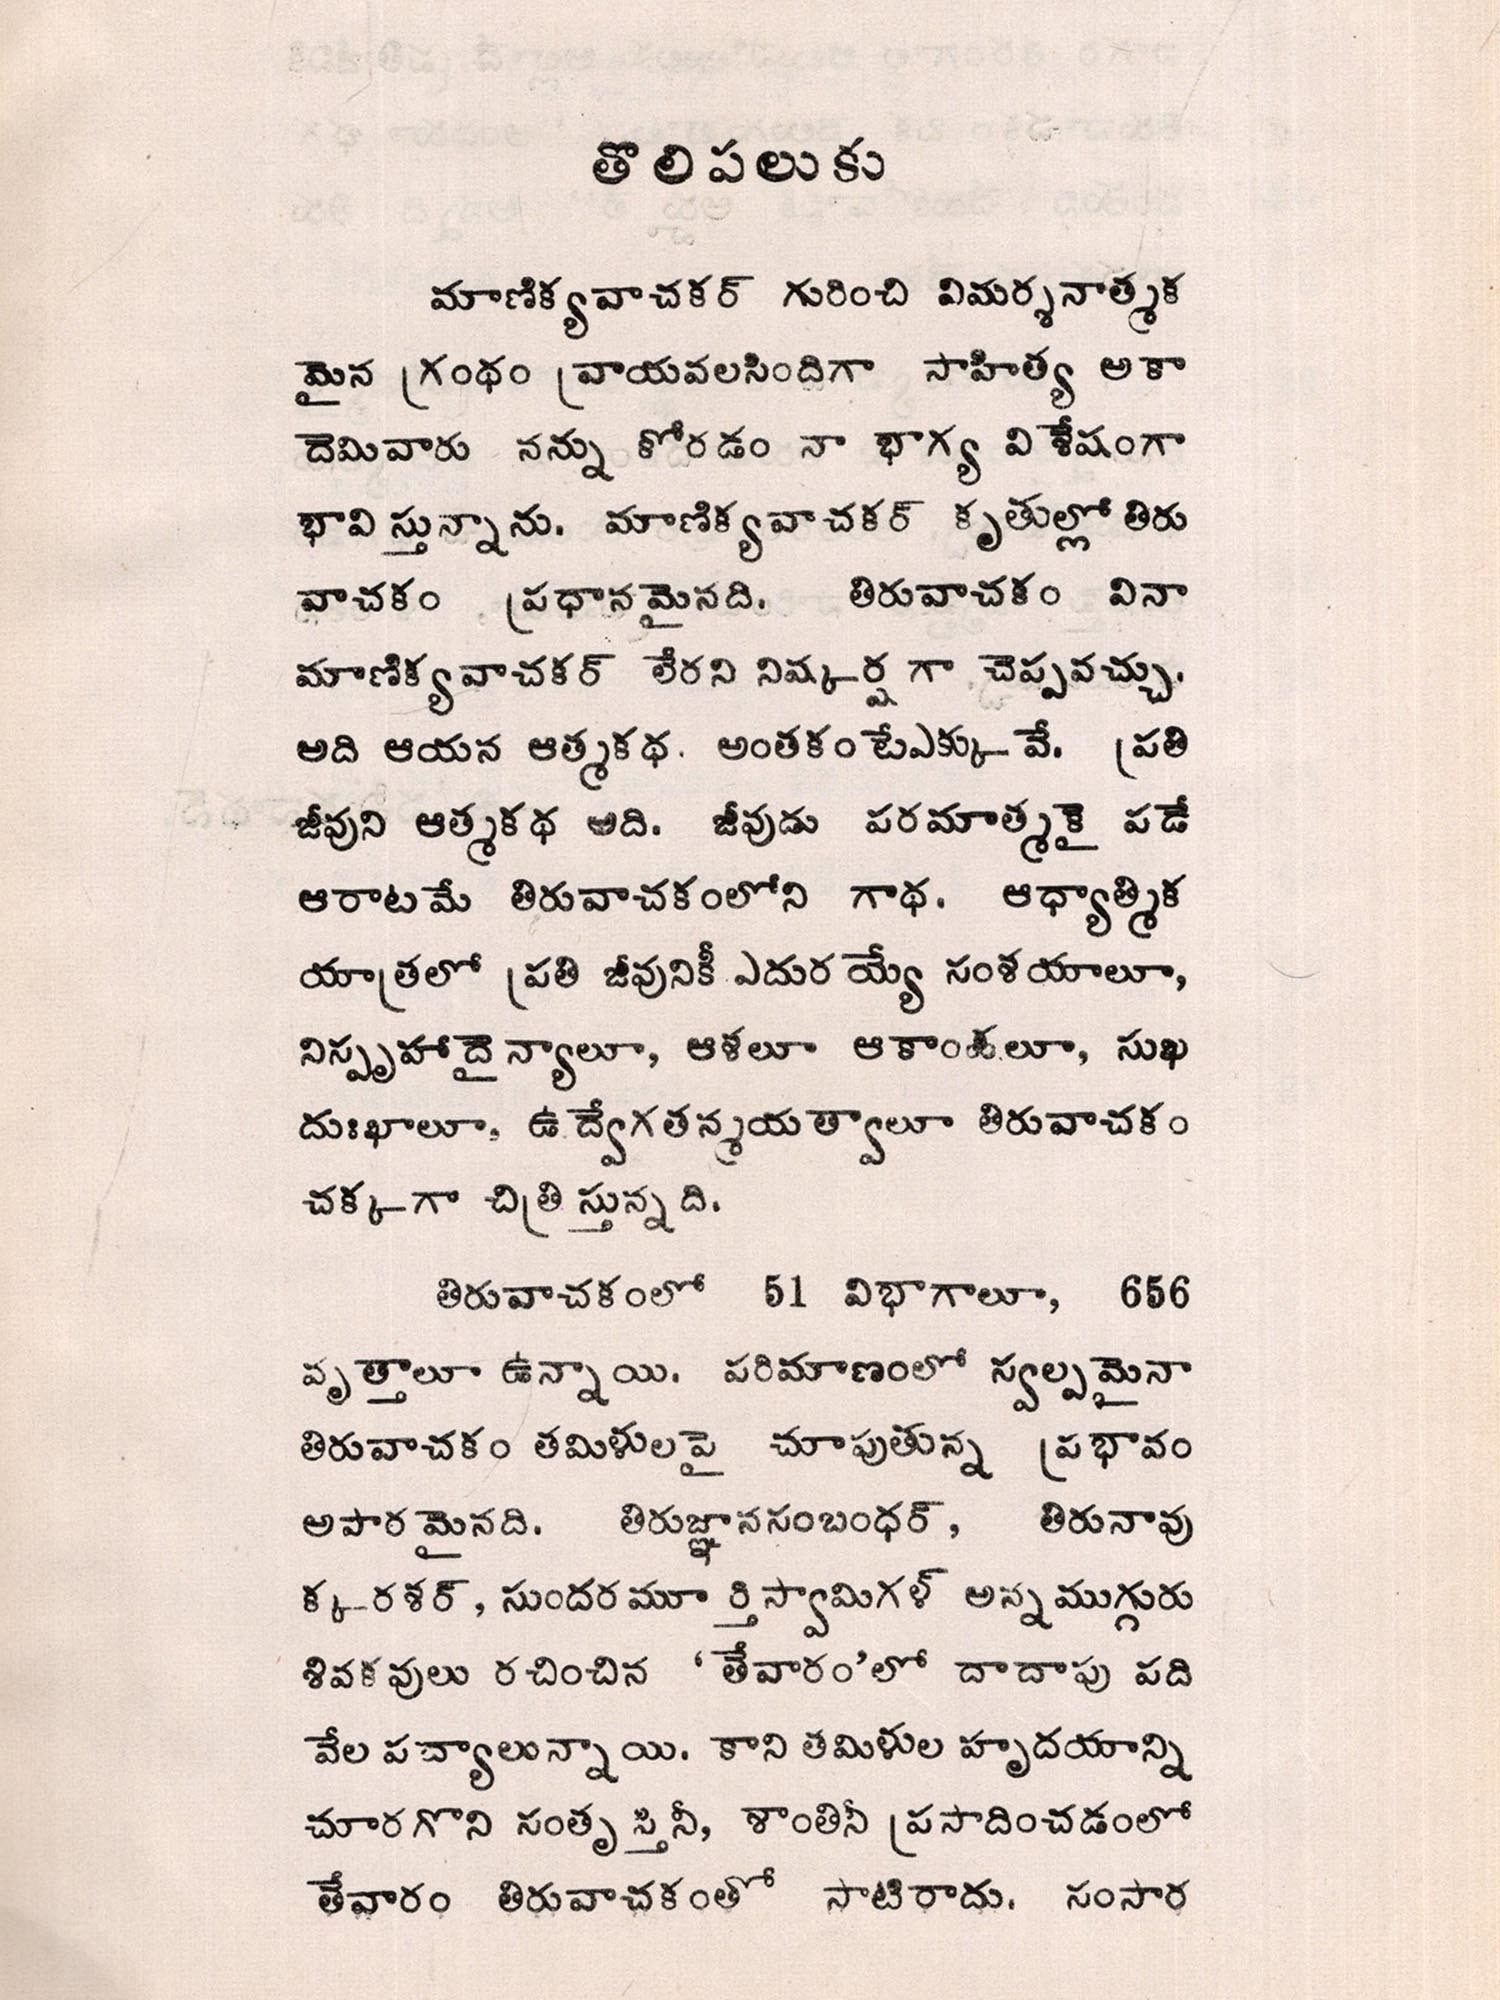 తొలిపలుకు
మాణిక్యవాచకర్ గురించి విమర్శనాత్మక
మైన గ్రంథం వ్రాయవలసిందిగా సాహిత్య అకా
దెమివారు నన్ను కోరడం నా భాగ్య విశేషంగా
భావిస్తున్నాను. మాణిక్యవాచకర్ కృతుల్లో తిరు
వాచకం ప్రధానమైనది. తిరువాచకం వినా
మాణిక్యవాచకర్ లేరని నిష్కర్షగా చెప్పవచ్చు.
అది ఆయన ఆత్మకథ. అంతకంటేఎక్కువే. ప్రతి
జీవుని ఆత్మకథ అది. జీవుడు పరమాత్మకై పడే
ఆరాటమే తిరువాచకంలోని గాథ. ఆధ్యాత్మిక
యాత్రలో ప్రతి జీవునికీ ఎదురయ్యే సంశయాలూ,
నిస్పృహాదైన్యాలూ, ఆశలూ ఆకాంక్షలూ, సుఖ
దుఃఖాలూ, ఉద్వేగతన్మయత్వాలూ తిరువాచకం
చక్కగా చిత్రిస్తున్నది.
తిరువాచకంలో 51 విభాగాలూ, 656
వృత్తాలూ ఉన్నాయి. పరిమాణంలో స్వల్పమైనా
తిరువాచకం తమిళులపై చూపుతున్న ప్రభావం
అపారమైనది. తిరుజ్ఞానసంబంధర్, తిరునావు
క్కరశర్, సుందరమూర్తిస్వామిగళ్ అన్న ముగ్గురు
శివకవులు రచించిన ‘తేవారం’లో దాదాపు పది
వేల పద్యాలున్నాయి. కాని తమిళుల హృదయాన్ని
చూరగొని సంతృప్తినీ, శాంతినీ ప్రసాదించడంలో
తేవారం తిరువాచకంతో సాటిరాదు. సంసార